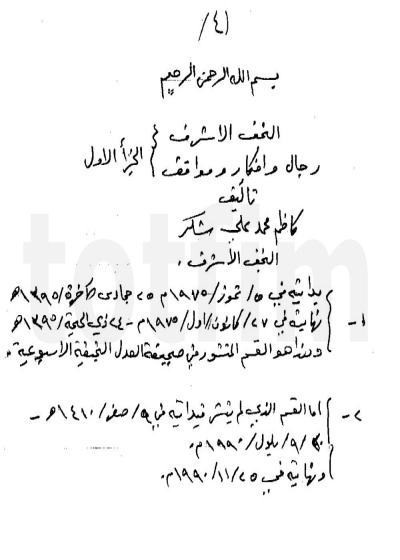 /٤١
بسم الله الرحمن الرحيم
النجف الاشرف
رجال وافكار ومواقف } الجزأ الاول
تأليف
كاظم محمد علي شكر
النجف الأشرف .
بدايته في ٥/تموز/١٩٧٥م ٢٥ جمادى الآخرة/١٣٩٥هـ
١- نهايته في ٢٧/كانون الاول/١٩٧٥م - ٢٤ ذي الحجة/١٣٩٥هـ
وهذا هو القسم المنشور في صحيفة العدل النجفية الاسبوعية .
٢- اما القسم الذي لم ينشر فبدايته في ٩/صفر/١٤١٠هـ -
٩/ايلول/١٩٩٠م.
ونهايته في ٢٥/١١/١٩٩٠م.
totfim